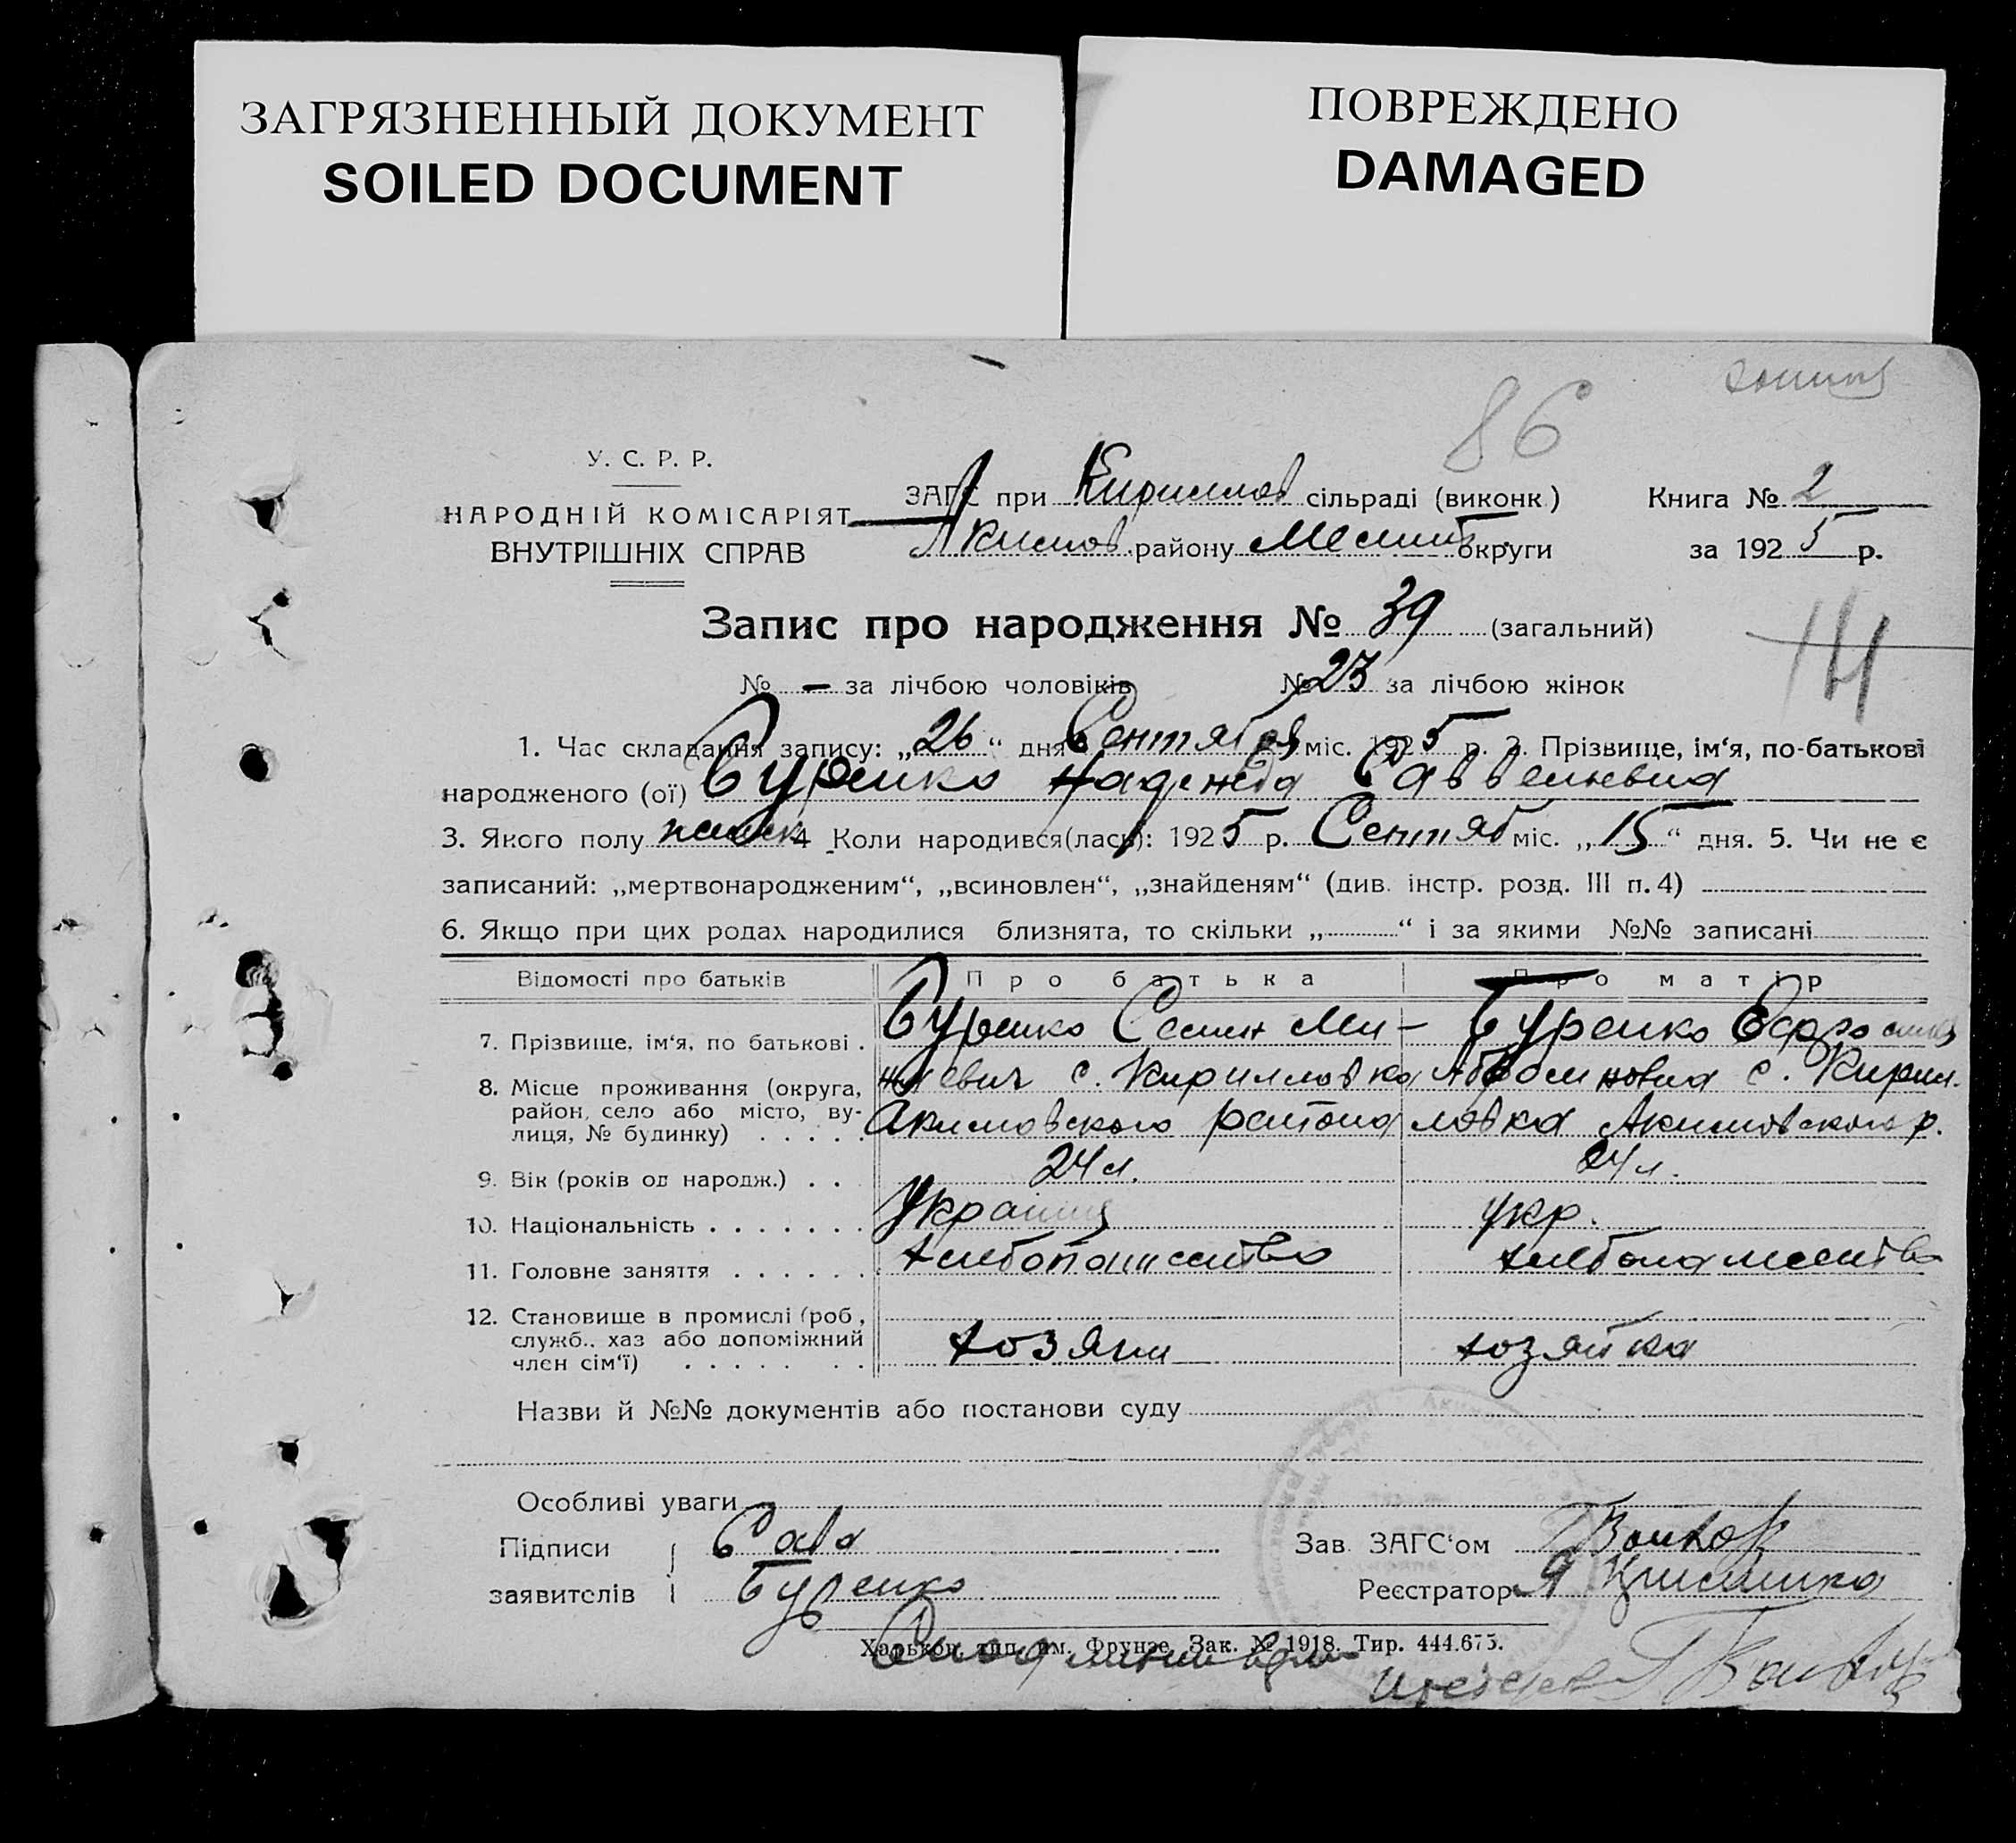 ЗАГРЯЗНЕННЫЙ ДОКУМЕНТ
SOILED DOCUMENT
ПОВРЕЖДЕНО
DAMAGED
86
У. С. Р. Р.
НАРОДНІЙ КОМІСАРІЯТ
ВНУТРІШНІХ СПРАВ
ЗАГС при Кириллов сільраді (виконк.)
Акимов. району Мелит. округи
Книга № 2
за 1925 р.
Запис про народження № 39 (загальний)
№ — за лічбою чоловіків № 23 за лічбою жінок
1. Час складання запису: „26“ дня Сентября міс. 1925 р. 2. Прізвище, ім‘я, по-батькові
народженого (ої) Буренко Надежда
3. Якого полу 4. Коли народився(лась): 1925 р. Сентяб міс. „15“ дня. 5. Чи не є
записаний: „мертвонародженим“, „всиновлен“, „знайденям“ (див. інстр. розд. III п. 4)
6. Якщо при цих родах народилися близнята, то скільки „ “ і за якими №№ записані
Відомості про батьків Про батька Про матір
7. Прізвище, ім‘я, по батькові . Буренко Буренко
8. Місце проживання (округа, с. Кирилловка с. Кирил-
район, село або місто, ву- Акимовского района ловка Акимовского р.
лиця, № будинку) . . . . .
9. Вік (років од народж.) . . 24 л. 24 л.
10. Національність . . . . . . . Украинц укр.
11. Головне заняття . . . . . . хлебопашество хлебопашество
12. Становище в промислі (роб,
служб., хаз або допоміжний хозяин хозяйка
член сім‘ї) . . . . . . .
Назви й №№ документів або постанови суду
Особливі уваги
Підписи Сава Зав. ЗАГС‘ом
заявителів Буренко Реєстратор
Харьков, тип. им. Фрунзе. Зак. № 1918. Тир. 444.675.